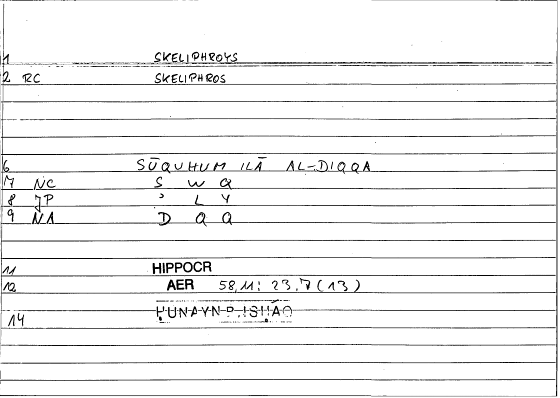 1 SKELIPHROYS
2 RC SKELIPHROS
6 SŪQUHUM ILĀ AL-DIQQA
7 NC S W Q
8 JP ʾ L Y
9 NA D Q Q
11 HIPPOCR
12 AER 58,11; 23,7 (13)
14 ḤUNAYN B. ISḤĀQ